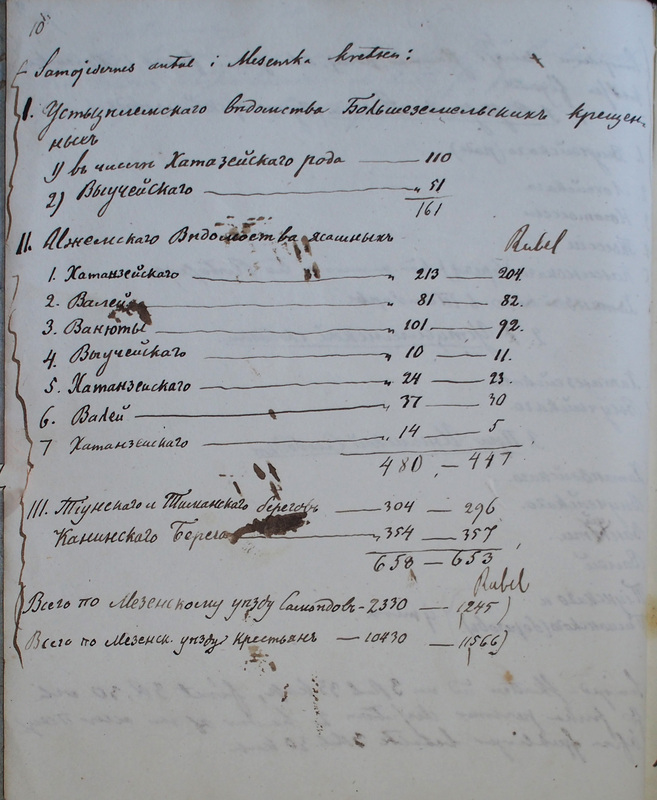 10
Samojedernes antal i Mesensk. kretsen:
I. Устьцилемскаго вѣдомства Большеземельскихъ крещен-
ныхъ
1) въ числѣ Хатазейскаго рода — 110
2) Выучейскаго — „ 51
161
II. Ижемскаго Вѣдомства ясашныхъ Rubel
1. Хатанзейскаго — „ 213 — 204.
2. Валей — „ 81 — 82.
3. Ванюты — „ 101 — 92.
4. Выучейскаго — „ 10 — 11.
5. Хатанзейскаго — „ 24 — 23.
6. Валей — „ 37 — 30
7 Хатанзейскаго — „ 14 — 5
480 „ — 447
III. Тіунскаго и Тиманскаго береговъ — 304 — 296
Канинскаго Берега — „ 354 — 357
658 — 653
Rubel
Всего по Мезенскому уѣзду Самоѣдовъ - 2330 — (245)
Всего по Мезенск. уѣзду крестьянъ — 10430 — 11566)